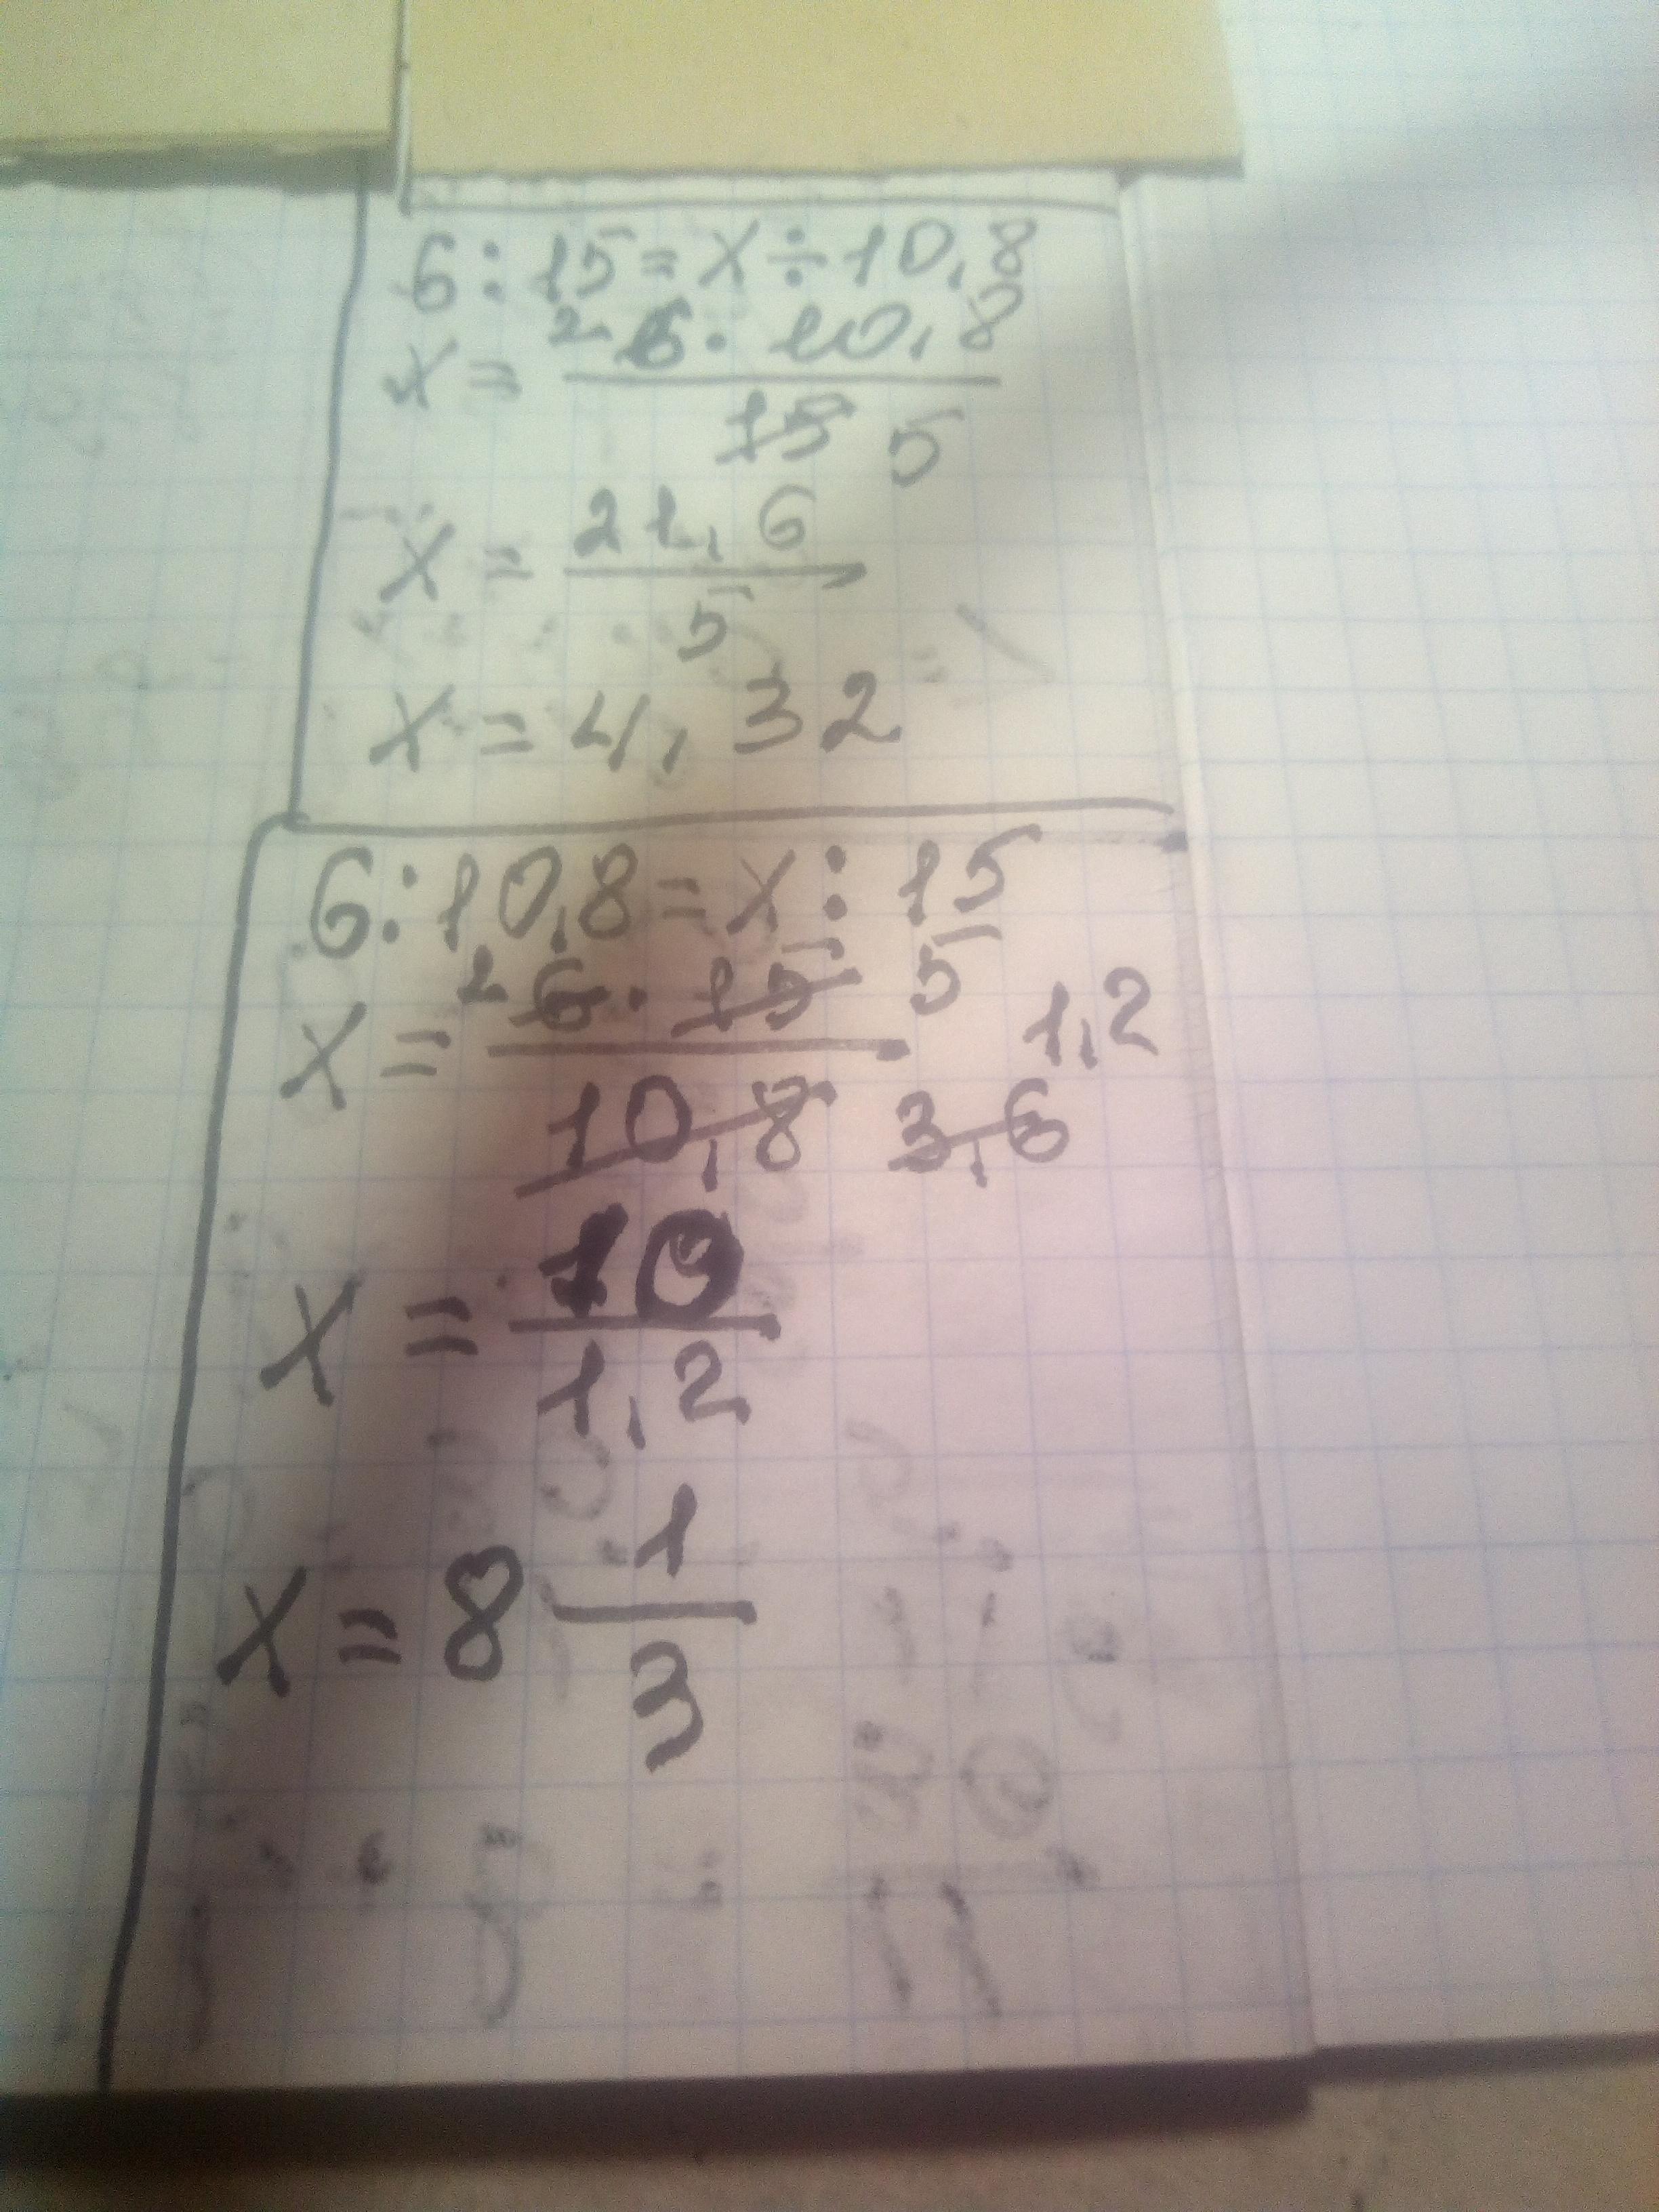 6 : 15 = x ÷ 10,8
x = 2 6 · 10,8 / 15 5
x = 21,6 / 5
x = 4,32
6 : 10,8 = x : 15
x = 2 6 · 15 5 / 10,8 3,6 1,2
x = 10 / 1,2
x = 8 1/3